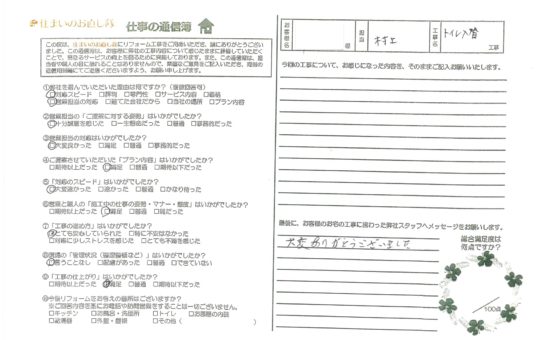 住まいのお直し隊 仕事の通信簿
この度は、住まいのお直し隊にリフォーム工事をご用命いただき、誠にありがとうござい
ました。
①弊社を選んでいただいた理由は何ですか?(複数回答可)
□対応スピード □評判 □専門性 □サービス内容 □価格
□営業担当の対応 □建てた会社だから □当社の場所 □プラン内容
②営業担当の「ご提案に対する姿勢」はいかがでしたか?
□十分誠意を感じた □一生懸命だった □普通 □事務的だった
③営業担当の対応はいかがでしたか?
□大変良かった □満足 □普通 □事務的だった
④ご提案させていただいた「プラン内容」はいかがでしたか?
□期待以上だった □満足 □普通 □期待以下だった
⑤「対応のスピード」はいかがでしたか?
□大変速かった □速かった □普通 □かなり待った
⑥営業と職人の「施工中の仕事の姿勢・マナー・態度」はいかがでしたか?
□期待以上だった □満足 □普通 □雑だった
⑦「工事の進め方」はいかがでしたか?
□とても安心していられた □特に不安はなかった
□対応に少しストレスを感じた □とても不満を感じた
⑧現場の「管理状況(整理整頓など)」はいかがでしたか?
□言うことなし □配慮があった □普通 □できていない
⑨「工事の仕上がり」はいかがでしたか?
□期待以上だった □満足 □普通 □期待以下だった
⑩今後リフォームをお考えの箇所はございますか?
※ご回答内容を基にお電話や訪問営業をすることは一切ございません。
□キッチン □洗面台・洗面所 □トイレ □お部屋の内装
□給湯器 □外壁・屋根 □その他( )
お客様名
様
担当
村上
工事名
トイレ入替
工事
今回の工事について、お感じになった内容を、そのままご記入お願いいたします。
最後に、お客様のお宅の工事に携わった弊社スタッフへメッセージをお願いします。
大変ありがとうございました
総合満足度は
何点ですか?
/100点